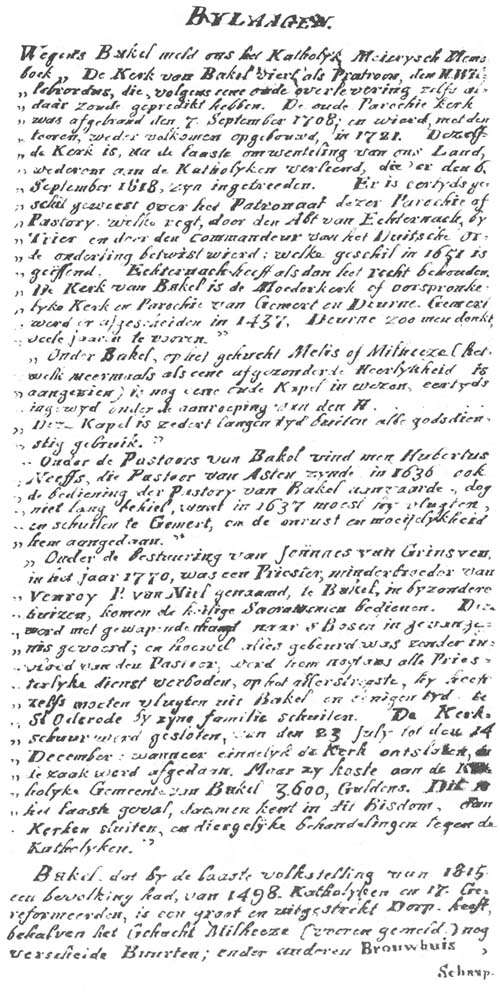 BYLAAGEN.
Wegens Bakel meld ons het Katholyk Meierysch Mem
boek „ De Kerk van Bakel viert als Patroon, den H. Wil-
„ lebrordus, die, volgens eene oude overlevering zelfs al-
„ daar zoude gepredikt hebben. De oude Parochie kerk
„ was afgebrand den 7. September 1708; en wierd, met den
„ tooren, weder volkomen opgebouwd, in 1721. Dezelf-
„ de Kerk is, na de laaste omwenteling van ons Land,
„ wederom aan de Katholyken verleend, die 'er den 6.
„ September 1818, zyn ingetreeden. Er is eertyds ge-
„ schil geweest over het Patronaat dezer Parochie of
„ Pastory. welke regt, door den Abt van Echternach, by
„ Trier en door den Commandeur van het Duitsche Or-
„ de onderling betwist wierd: welke geschil in 1651 is
„ geëffend. Echternach heeft als dan het recht behouden.
„ De Kerk van Bakel is de Moederkerk of oorspronke-
„ lyke Kerk en Parochie van Gemert en Deurne. Gemert
„ werd er afgescheiden in 1437. Deurne zoo men denkt
„ veele jaaren te vooren. "
„ Onder Bakel, op het gehucht Melis of Milheeze (het-
„ welk meermaals als eene afgezonderde Heerlykheid is
„ aangezien) is nog eene oude Kapel in wezen, eertyds
„ ingewyd onder de aanroeping van den H .
„ Deze Kapel is zedert langen tyd buiten alle godsdien-
„ stig gebruik. "
„ Onder de Pastoors van Bakel vind men Hubertus
„ Neeffs, die Pastoor van Asten zynde in 1636 ook
„ de bediening der Pastory van Bakel aanvaarde, dog
„ niet lang behiel, want in 1637 moest hy vlugten,
„ en schuilen te Gemert, en de onrust en moeijelykheid
„ hem aangedaan. "
„ Onder de bestuuring van Joännes van Grinsven,
„ in het jaar 1770, was een Priester, minderbroeder van
„ Venroy P. van Niel genaamd, te Bakel, in byzondere
„ huizen, komen de heilige Sacramenten bedienen. Deze
„ werd met gewapende hand naar s Bosch in gevange-
„ nis gevoerd; en hoewel alles gebeurd was zonder in-
„ vloed van den Pastoor, werd hem nogtans alle Pries-
„ terlyke dienst verboden, op het allerstrengste, hy heeft
„ zelfs moeten vlugten uit Bakel en eenigen tyd te
„ St Oderode by zyne familie schuilen. De Kerk-
„ schuur werd gesloten, van den 23 July tot den 14
„ December: wanneer eindelyk de Kerk ontsloten, en
„ te zaak werd afgedaan. Maar zy koste aan de Ka-
„ holyke Gemeente van Bakel 3,600, Guldens. Dit is
„ het laaste geval, dat men kent in dit Bisdom, van
„ Kerken sluiten, en diergelyke behandelingen tegen de
„ Katholyken. "
Bakel. dat by de laaste volkstelling van 1815.
een bevolking had, van 1498. Katholyken en 17. Ge-
reformeerden, is een groot en uitgestrekt Dorp. heeft,
behalven het Gehucht Milheeze (vooren gemeld) nog
verscheide Buurten; onder anderen Brouwhuis ,
Schaap-